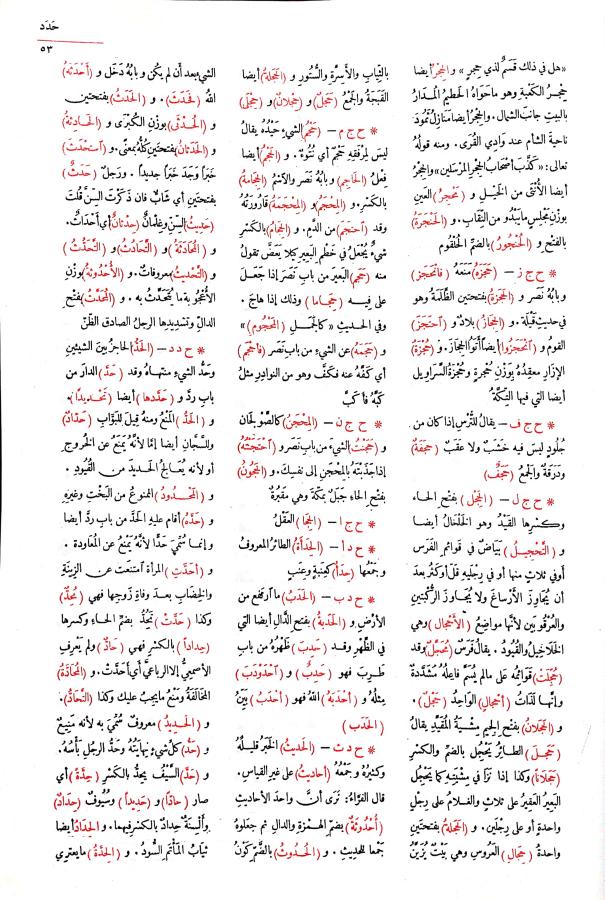 حَدَد
٥٣
«هل في ذلك قَسَمٌ لذي حِجر» و (الحِجْرُ) أيضا
حِجْرُ الكَعْبةِ وهو ماحَوَاهُ الحَطِيمُ المُدارُ
بالبيتِ جانبَ الشَّمالِ. والحِجْرُ أيضا منازلُ ثَمُودَ
ناحيةَ الشأم عند وادِي القُرى. ومنه قولُهُ
تعالى: «كَذَّبَ أصحابُ الحِجْرِ المُرْسَلين» والحِجْرُ
أيضا الأُنثَى من الخَيْل و (مَحْجِرُ) العَينِ
بوزْنِ مَجلِسٍ مايَبْدُو من النِّقاب. و (الحَنْجَرَةُ)
بالفتح و (الحُنْجُورُ) بالضمِّ الحُلْقُوم
* ح ج ز – (حَجَزَهُ) مَنَعَهُ (فانْحَجَزَ)
وبابُهُ نَصَر و (الحَجَزَةُ) بفتحتين الظَّلَمةُ وهو
في حديث قَيْلَة. و (الحِجازُ) بِلادٌ و (احْتَجَزَ)
القومُ و (انْحَجَزُوا) أيضا أَتَوُا الحِجازَ. و (حُجْزَةُ)
الإزارِ مَعقِدُهُ بوَزْنِ حُجْرةٍ وحُجْزةُ السَّراويلِ
أيضا التي فيها التِّكَّةُ
* ح ج ف – يقالُ للتُّرْسِ إذا كان من
جُلودٍ ليسَ فيه خَشَبٌ ولا عَقَبٌ (حَجَفَةٌ)
ودَرَقةٌ والجمعُ (حَجَفٌ)
* ح ج ل – (الحِجْل) بفتح الحاء
وكسْرها القَيْدُ وهو الخَلْخالُ أيضا
و (التَّحْجِيلُ) بَياضٌ في قوائم الفَرَس
أوفي ثلاثٍ منها أو في رِجلَيه قَلَّ أوكَثُر بعدَ
أن يُجاوِزَ الأَرْساغَ ولا يُجاوِزَ الرُّكْبَتَيْنِ
والعُرْقُوبَيْنِ لأنها مواضِعُ (الأَحْجالِ) وهي
الخَلاخيلُ والقُيُودُ. ويقالُ فَرَسٌ (مُحَجَّلٌ) وقد
(حُجِّلَتْ) قوائمُهُ على مالم يُسَمَّ فاعِلُهُ مُشَدَّدةً
وإنَّها لَذَاتُ (أَحْجالٍ) الواحِدُ (حِجْلٌ).
و (الحَجَلانُ) بفتح الجيم مِشْيَةُ المُقَيَّدِ يقالُ
(حَجَلَ) الطائرُ يَحجُلُ بالضمِّ والكسْرِ
(حَجَلانًا) وكذا إذا نَزَا في مِشْيَتِهِ كما يَحجُلُ
البعيرُ العَقِيرُ على ثلاثٍ والغلامُ على رِجْلٍ
واحدةٍ أو على رِجْلَين. و (الحَجَلةُ) بفتحتين
واحدةُ (حِجالِ) العَروسِ وهي بَيْتٌ يُزَيَّنُ
بالثِّيابِ والأَسِرَّةِ والسُّتُورِ و (الحَجَلةُ) أيضا
القَبَجَةُ والجمعُ (حَجَلٌ) و (حِجْلانٌ) و (حِجْلَى)
* ح ج م – (حَجْمُ) الشيءِ حَيْدُهُ يقالُ
ليسَ لمِرفَقِهِ حَجْمٌ أي نُتُوءٌ. و (الحَجْمُ) أيضا
فِعْلُ (الحاجِمِ) وبابُهُ نَصَر والاسمُ (الحِجامَةُ)
بالكَسْرِ. و (المِحْجَمُ) و (المِحْجَمَةُ) قارُورَتُهُ
وقد (احْتَجَمَ) من الدَّم. و (الحِجامُ) بالكَسْرِ
شيءٌ يُجعَلُ في خَطْمِ البعيرِ كيلا يَعَضَّ تقولُ
منه (حَجَمَ) البَعيرَ من باب نَصَرَ إذا جَعَلَ
على فِيهِ (حِجَاما) وذلك إذا هاجَ.
وفي الحديث «كالجَمَل (المَحْجُوم)»
و (حَجَمَهُ) عن الشيءِ من باب نَصَرَ (فأحْجَم)
أي كَفَّهُ عنه فكَفَّ وهو من النوادِرِ مثلُ
كَبَّهُ فأَكَبَّ
* ح ج ن – (المِحْجَنُ) كالصَّوْلَجانِ
و (حَجَنْتُ) الشيءَ من باب نَصَر و (احْتَجَنْتُهُ)
إذا جَذَبْتَهُ بالمِحْجَنِ إلى نَفْسِكَ. و (الحَجُونُ)
بفتح الحاءِ جَبَلٌ بمَكَّةَ وهي مَقْبُرةٌ
* ح ج ا – (الحِجَا) العَقْلُ
* ح د أ – (الحِدَأَةُ) الطائرُ المعروفُ
وجَمْعُها (حِدَأٌ) كعِنَبةٍ وعِنَبٍ
* ح د ب – (الحَدَبُ) ما ارتفع من
الأَرْضِ و (الحَدَبةُ) بفتح الدَّالِ أيضا التي
في الظَّهْرِ وقد (حَدِبَ) ظَهْرُهُ من باب
طَرِبَ فهو (حَدِبٌ) و (احْدَوْدَبَ)
مِثلُهُ و (أحْدَبَهُ) اللهُ فهو (أحْدَبُ) بَيِّنُ
(الحَدَبِ)
* ح د ث – (الحديثُ) الخَبَرُ قليلُهُ
وكثيرُهُ وجَمْعُهُ (أحاديثُ) على غيرِ القياس.
قال الفَرَّاءُ: نُرَى أنّ واحدَ الأحاديثِ
(أُحْدُوثَةٌ) بضم الهمْزةِ والدالِ ثم جعلوهُ
جَمْعا للحديثِ. و (الحُدوثُ) بالضَّمِّ كَوْنُ
الشيءِ بعد أن لم يكُنْ وبابُهُ دَخَلَ و (أَحْدَثَهُ)
اللهُ (فحَدَثَ). و (الحَدَثُ) بفتحتين
و (الحُدْثَى) بوزْنِ الكُبْرَى و (الحادِثَةُ)
و (الحَدَثانُ) بفتحتين كُلُّهُ بمعنًى. و (استَحْدَثَ)
خَبَرًا وَجَدَ خَبَرًا جديداً. ورَجلٌ (حَدَثٌ)
بفتحتين أي شابٌّ فان ذَكَرْتَ السِّنَّ قلتَ
(حَدِيثُ) السِّنِّ وغِلْمانٌ (حُدْثانٌ) أي أَحْداثٌ.
و (المُحادَثَةُ) و (التَّحادُثُ) و (التَّحَدُّثُ)
و (التَّحديثُ) معروفاتٌ. و (الأُحْدُوثَةُ) بوزْنِ
الأُعْجُوبةِ ما يُتَحَدَّثُ به. و (المُحَدَّثُ) بفتح
الدالِ وتشديدِها الرجلُ الصادقُ الظَّنِّ
* ح د د – (الحَدُّ) الحاجزُ بين الشيئينِ
وحَدُّ الشيءِ مُنتهاهُ وقد (حَدَّ) الدارَ من
باب ردَّ و (حَدَّدها) أيضا (تَحْدِيدًا).
و (الحَدُّ) المَنْعُ ومنه قِيلَ للبَوَّابِ (حَدَّادٌ)
وللسَّجّانِ أيضا إمّا لأنَّهُ يَمنَعُ عن الخُروج
أو لأنه يُعالجُ الحديدَ من القُيُودِ.
و (المَحْدُودُ) الممنوعُ من البَخْتِ وغيرِهِ
و (حَدَّهُ) أقام عليه الحَدَّ من باب ردَّ أيضا
وإنما سُمِّيَ حَدًّا لأنه يَمنَعُ عن المُعاوَدة.
و (أحَدَّتِ) المرأةُ امتنَعَت عن الزِّينةِ
والخِضابِ بعدَ وفاةِ زوجِها فهي (مُحِدٌّ)
وكذا (حَدَّتْ) تَحُدُّ بضم الحاءِ وكسرِها
(حِدادا) بالكسْرِ فهي (حادٌّ) ولم يَعْرِفِ
الأصمعيُّ إلا الرباعيَّ أي أَحَدَّتْ. و (المُحادَّةُ)
المُخالَفةُ ومَنْعُ مايَجبُ عليك وكذا (التَّحادُّ).
و (الحديدُ) معروفٌ سُمِّيَ به لأنه مَنِيعٌ
و (حَدُّ) كلِّ شيءٍ نِهايَتُهُ وحَدُّ الرَّجلِ بَأْسُهُ.
و (حَدَّ) السَّيْفُ يحِدُّ بالكَسْرِ (حِدَّةً) أي
صار (حادًّا) و (حَدِيدًا) وسُيوفٌ (حِدَادٌ)
وأَلْسِنةٌ حِدادٌ بالكسْرِ فيهما. و (الحِدَادُ) أيضا
ثيابُ المَأْتَمِ السُّودُ. و (الحِدَّةُ) ما يعتري